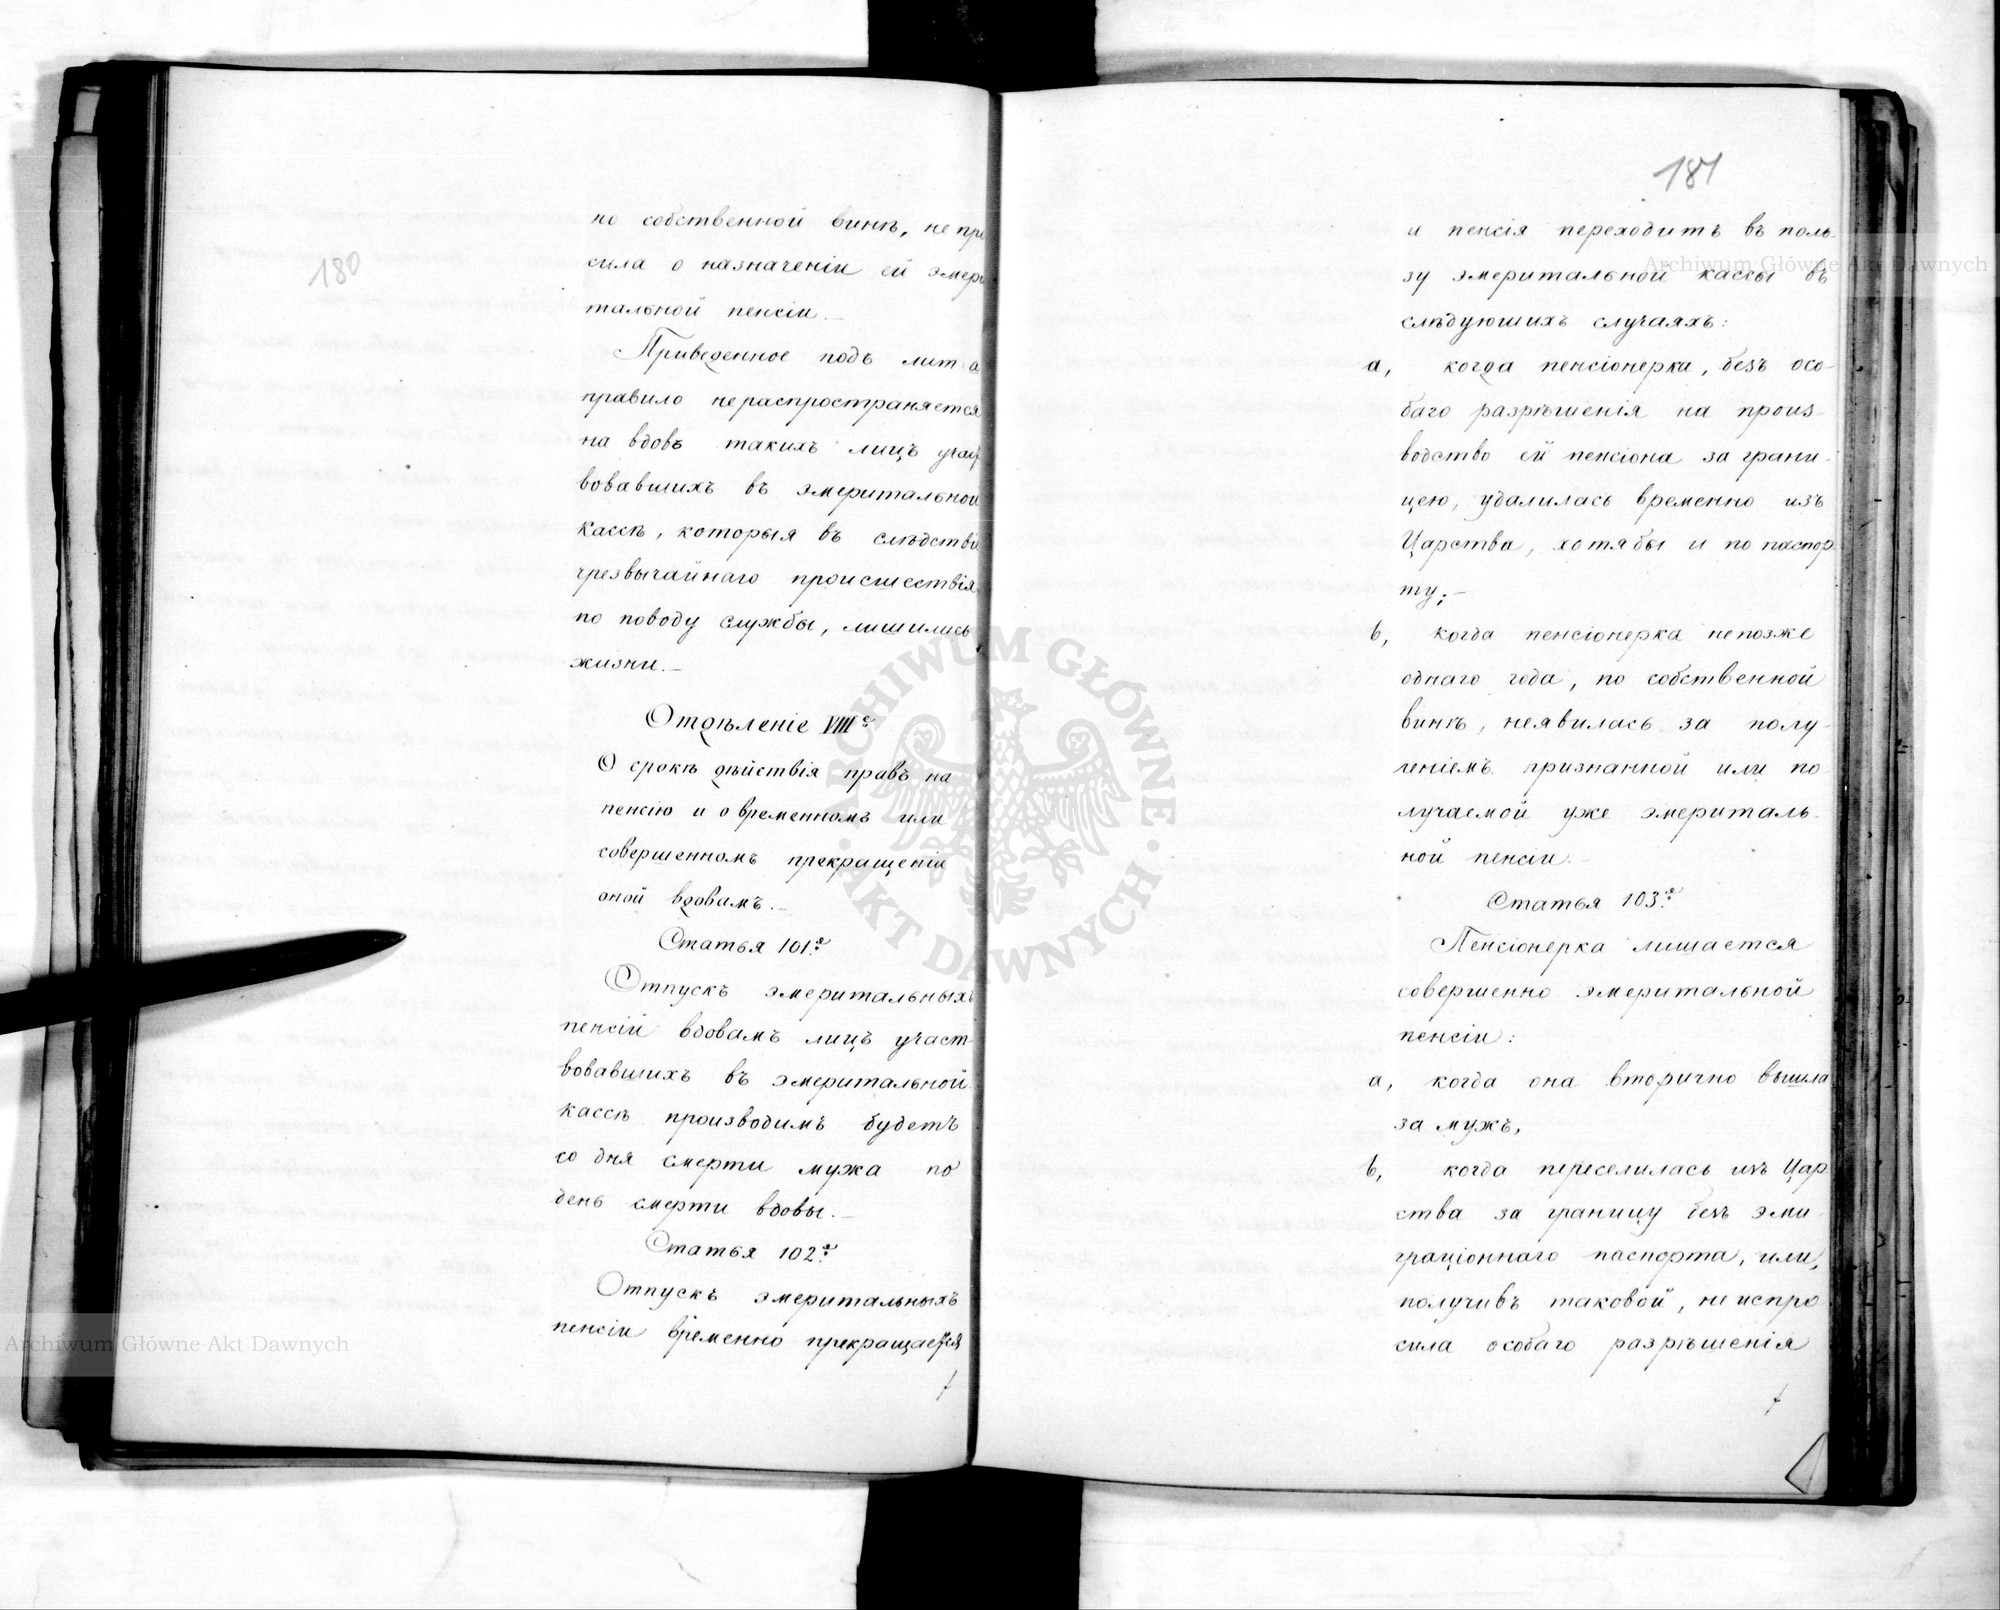 180
по собственной винѣ, не про
сила о назначеніи ей эмери
тальной пенсіи.
Приведенное подъ лит а
правило нераспространяется
на вдовъ такихъ лицъ участ
вовавшихъ въ эмеритальной
кассѣ, которыя въ слѣдствіе
чрезвычайнаго происшествія
по поводу службы, лишились
жизни.
Отдѣленіе VIII е
О срокѣ дѣйствія правъ на
пенсію и о временномъ или
совершенномъ прекращеніи
оной вдовамъ.
Статья 101.я
Отпускъ эмеритальныхъ
пенсій вдовамъ лицъ участ
вовавшихъ въ эмеритальной
кассѣ производимъ будетъ
со дня смерти мужа по
день смерти вдовы.
Статья 102.я
Отпускъ эмеритальныхъ
пенсіи временно прекращается
181
и пенсія переходитъ въ поль-
зу эмеритальной кассы въ
слѣдующихъ случаяхъ:
а, когда пенсіонерка, безъ осо-
баго разрѣшенія на произ-
водство ей пенсіона за грани-
цею, удалилась временно изъ
Царства, хотябы и по паспор
ту;
b, когда пенсіонерка непозже
однаго года, по собственной
винѣ, неявилась за полу-
ченіемъ признанной или по
лучаемой уже эмериталь-
ной пенсіи.
Статья 103.я
Пенсіонерка лишается
совершенно эмеритальной
пенсіи:
а, когда она вторично вышла
за мужъ,
b, когда переселилась изъ Цар
ства за границу безъ эми
граціоннаго паспорта, или,
получивъ таковой, не испро
сила особаго разрѣшенія
Archiwum Główne Akt Dawnych
Archiwum Główne Akt Dawnych
ARCHIWUM GŁÓWNE · AKT DAWNYCH ·